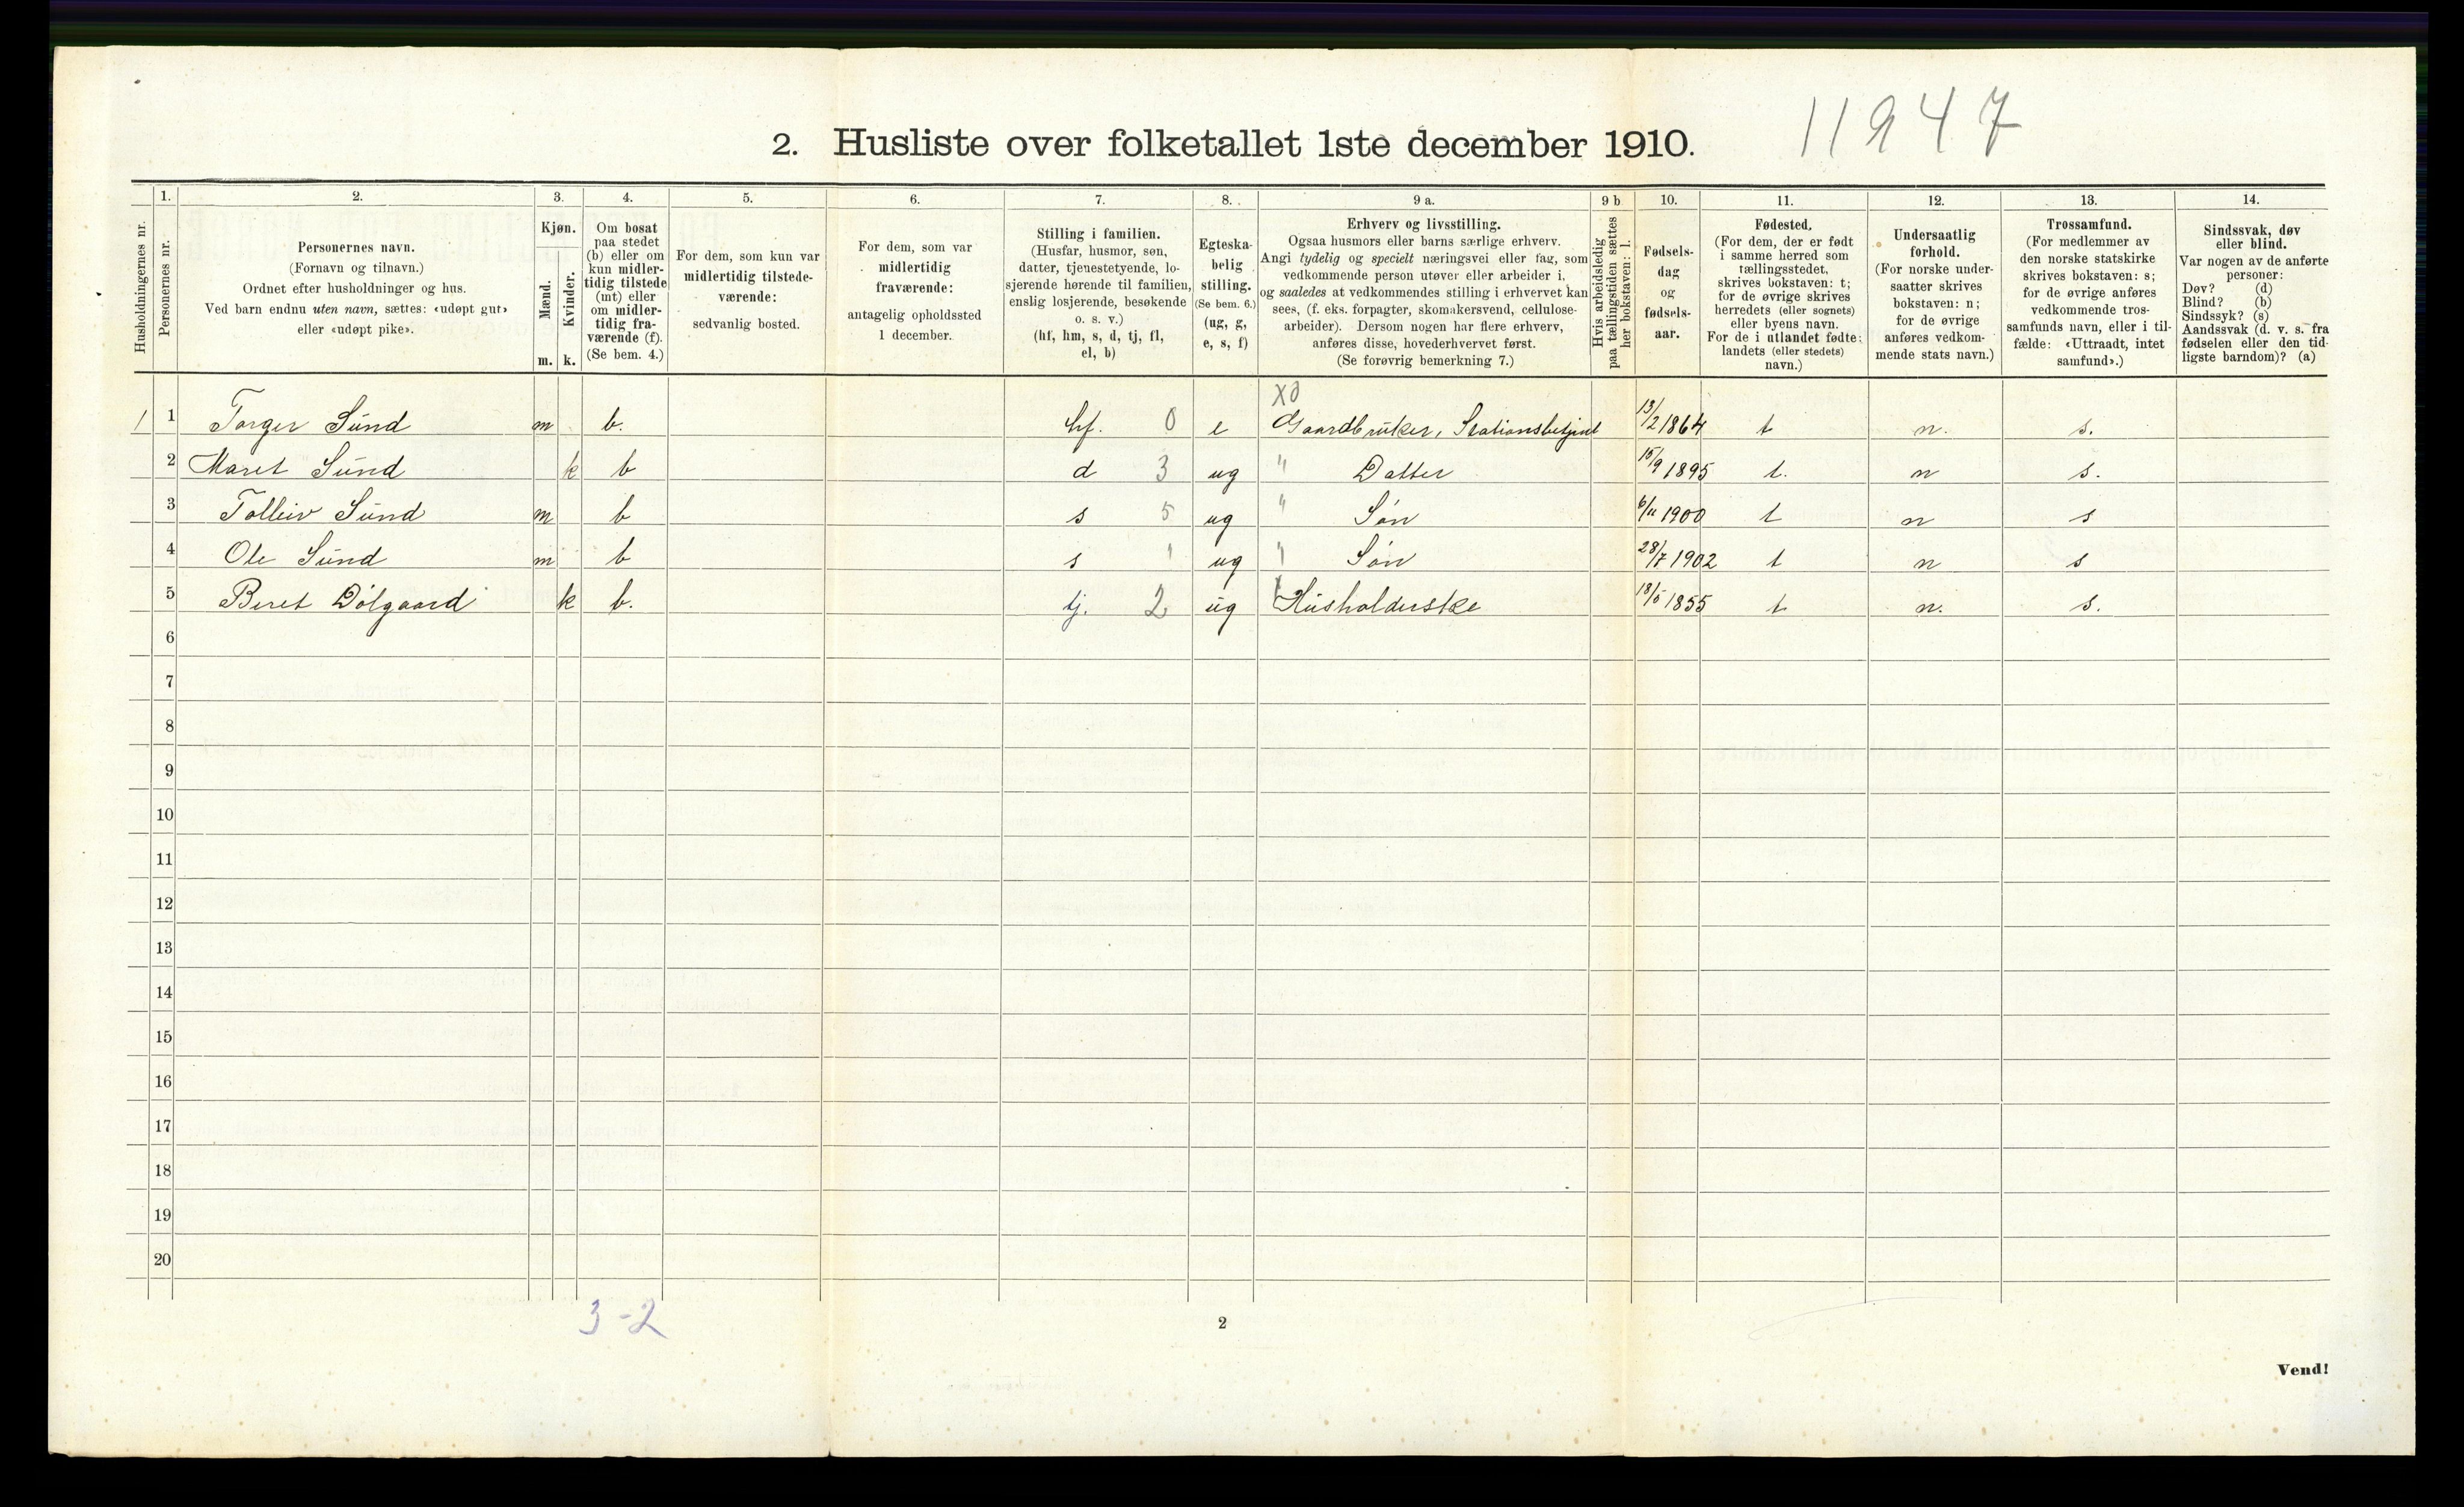 11947
2. Husliste over folketallet 1ste december 1910.
Husholdningernes nr.
1.
Personernes nr.
2.
Personernes navn.
(Fornavn og tilnavn.)
Ordnet efter husholdninger og hus.
Ved barn endnu uten navn, sættes: «udøpt gut»
eller «udøpt pike».
3.
Kjøn.
Mænd.
Kvinder.
m. k.
4.
Om bosat
paa stedet
(b) eller om
kun midler-
tidig tilstede
(mt) eller
om midler-
tidig fra-
værende (f).
(Se bem. 4.)
5.
For dem, som kun var
midlertidig tilstede-
værende:
sedvanlig bosted.
6.
For dem, som var
midlertidig
fraværende:
antagelig opholdssted
1 december.
7.
Stilling i familien.
(Husfar, husmor, søn,
datter, tjenestetyende, lo-
sjerende hørende til familien,
enslig losjerende, besøkende
o. s. v.)
(hf, hm, s, d, tj, fl,
el, b)
8.
Egteska-
belig
stilling.
(Se bem. 6.)
(ug, g,
e, s, f)
9 a.
Erhverv og livsstilling.
Ogsaa husmors eller barns særlige erhverv.
Angi tydelig og specielt næringsvei eller fag, som
vedkommende person utøver eller arbeider i,
og saaledes at vedkommendes stilling i erhvervet kan
sees, (f. eks. forpagter, skomakersvend, cellulose-
arbeider). Dersom nogen har flere erhverv,
anføres disse, hovederhvervet først.
(Se forøvrig bemerkning 7.)
9 b
Hvis arbeidsledig
paa tællingstiden sættes
her bokstaven: l.
10.
Fødsels-
dag
og
fødsels-
aar.
11.
Fødested.
(For dem, der er født
i samme herred som
tællingsstedet,
skrives bokstaven: t;
for de øvrige skrives
herredets (eller sognets)
eller byens navn.
For de i utlandet fødte:
landets (eller stedets)
navn.)
12.
Undersaatlig
forhold.
(For norske under-
saatter skrives
bokstaven: n;
for de øvrige
anføres vedkom-
mende stats navn.)
13.
Trossamfund.
(For medlemmer av
den norske statskirke
skrives bokstaven: s;
for de øvrige anføres
vedkommende tros-
samfunds navn, eller i til-
fælde: «Uttraadt, intet
samfund».)
14.
Sindssvak, døv
eller blind.
Var nogen av de anførte
personer:
Døv? (d)
Blind? (b)
Sindssyk? (s)
Aandssvak (d. v. s. fra
fødselen eller den tid-
ligste barndom)? (a)
X0
1 1 Torger Sund m b. hf. 0 e Gaardbruker, Stationsbetjent 13/2 1864 t n. s.
2 Maret Sund k b d 3 ug " Datter 15/9 1895 t. n s.
3 Tolleiv Sund m b s 5 ug " Søn 6/11 1900 t n s
4 Ole Sund m b s 1 ug " Søn 28/7 1902 t n s
5 Beret Dølgaard k b. tj. 2 ug Husholderske 18/5 1855 t n. s.
6
7
8
9
10
11
12
13
14
15
16
17
18
19
20
3-2
2
Vend!